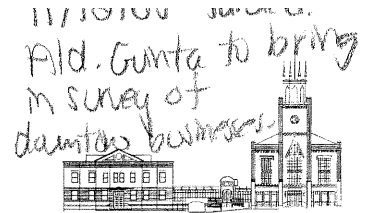 Ald. Gunta to bring
in survey of
downtown businesses.